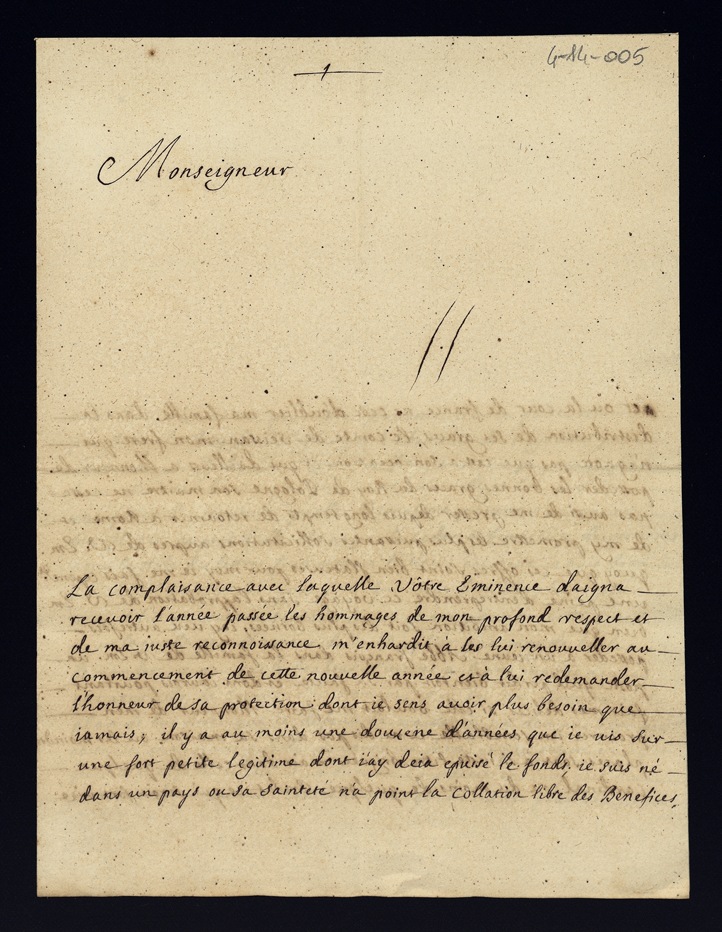 4-14-005
Monseigneur
La complaisance avec laquelle Vôtre Eminence daigna
recevoir l'année passée les hommages de mon profond respect et
de ma iuste reconnoissance m'enhardit à les lui renouveller au
commencement de cette nouvelle année et à lui redemander
l'honneur de sa protection dont ie sens avoir plus besoin que
iamais; il y a au moins une douzene d'années que ie vis sur
une fort petite legitime dont i'ay deia epuisé le fonds, ie suis né
dans un pays ou sa sainteté n'a point la collation libre des Benefices,